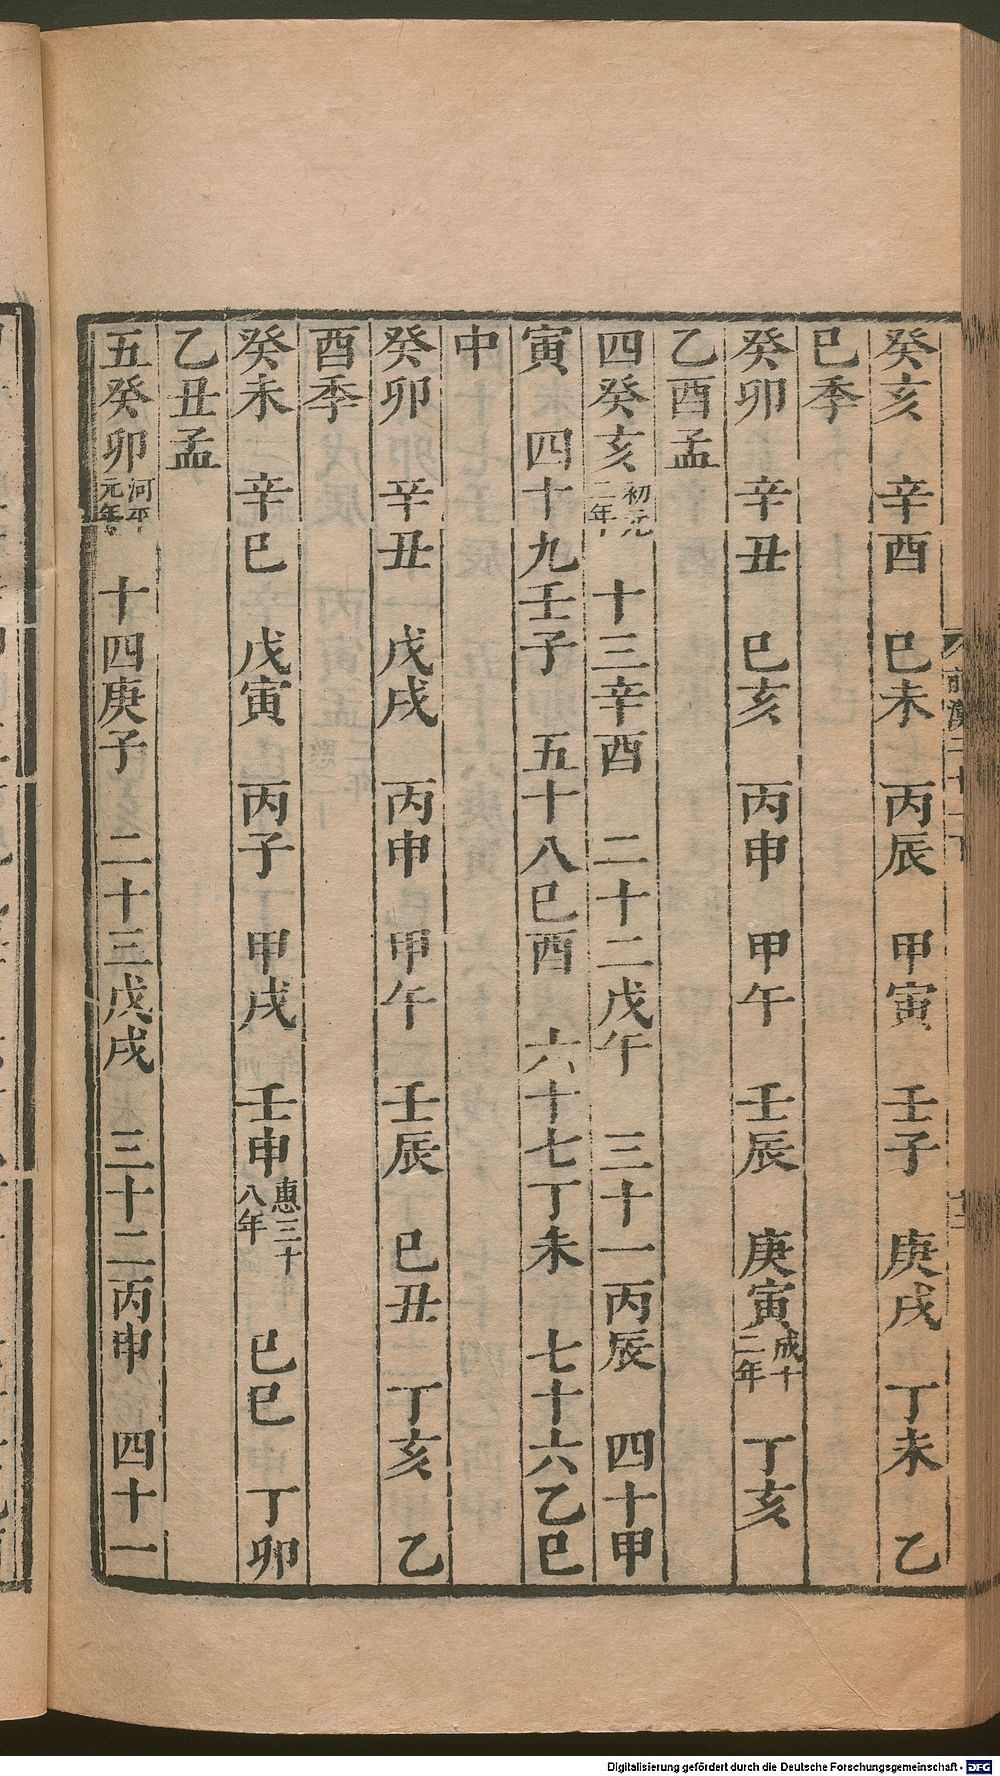 癸亥　辛酉　巳未　丙辰　甲寅　壬子　庚戌　丁未　乙
巳季
癸卯　辛丑　巳亥　丙申　甲午　壬辰　庚寅成十二年　丁亥
乙酉孟
四癸亥初元二年　十三辛酉　二十二戊午　三十一丙辰　四十甲
寅　四十九壬子　五十八巳酉　六十七丁未　七十六乙巳
中
癸卯　辛丑　戊戌　丙申　甲午　壬辰　巳丑　丁亥　乙
酉季
癸未　辛巳　戊寅　丙子　甲戌　壬申惠三十八年　巳巳　丁卯
乙丑孟
五癸卯河平元年　十四庚子　二十三戊戌　三十二丙申　四十一
Digitalisierung gefördert durch die Deutsche Forschungsgemeinschaft - DFG